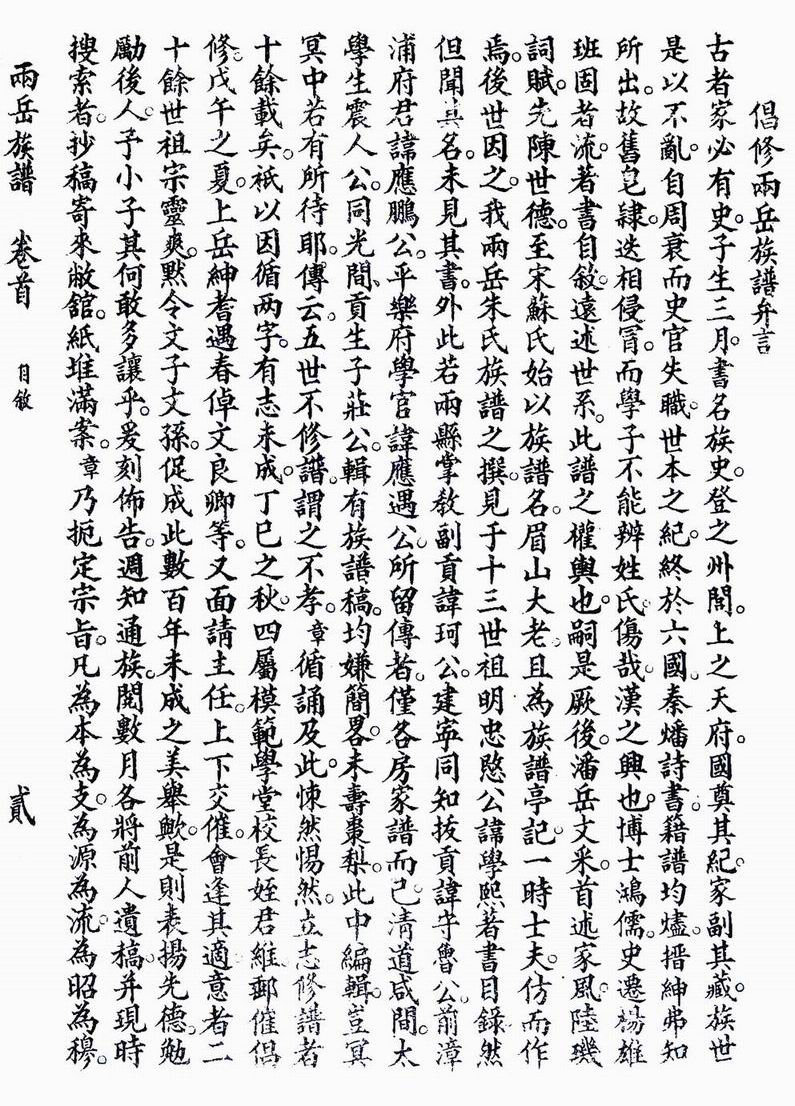 倡修兩岳族譜弁言
古者家必有史。子生三月。書名族史。登之州閭。上之天府。國奠其紀。家副其藏。族世
是以不亂。自周衰而史官失職。世本之紀。終於六國。秦燔詩書。籍譜均燼。搢紳弗知
所出。故舊皂隸。迭相侵冐。而學子不能辨姓氏。傷哉。漢之興也。博士鴻儒。史遷楊雄
班固者流。著書自敘。遠述世系。此譜之權輿也。嗣是厥後。潘岳文釆。首述家風。陸璣
詞賦。先陳世德。至宋蘇氏始以族譜名。眉山大老。且為族譜亭記。一時士夫。仿而作
焉。後世因之。我兩岳朱氏族譜之撰。見于十三世祖明忠愍公諱學熙著書目錄。然
但聞其名。未見其書。外此若兩縣掌教副貢諱珂公。建寧同知拔貢諱守魯公。前漳
浦府君諱應鵬公。平樂府學官諱應遇公。所留傳者。僅各房家譜而已。清道咸間。太
學生震人公。同光間。貢生子莊公。輯有族譜稿。均嫌簡畧。未壽棗梨。此中編輯。豈冥
冥中若有所待耶。傳云。五世不修譜。謂之不孝。章循誦及此。悚然惕然。立志修譜者
十餘載矣。祇以因循两字。有志未成。丁巳之秋。四屬模範學堂校長姪君維鄞催倡
修。戊午之夏。上岳紳耆遇春倬文良卿等。又面請主任。上下交催。會逢其適意者二
十餘世祖宗靈爽。黙令文子文孫。促成此數百年未成之美舉歟。是則表揚先德。勉
勵後人。子小子其何敢多讓乎。爰刻佈告。週知通族。閱數月各將前人遺稿。并現時
搜索者。抄稿寄來敝舘。紙堆滿案。章乃扼定宗旨。凡為本為支。為源為流。為昭為穆。
兩岳族譜 卷首 目敘 貳